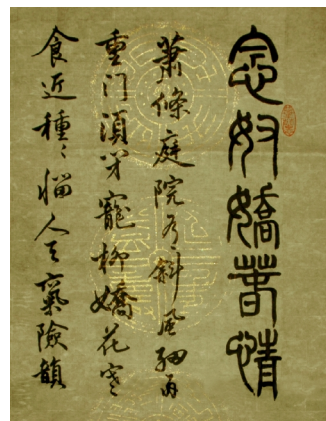 念奴嬌春情
蕭條庭院有斜風細雨
重門須閉寵柳嬌花寒
食近種〻惱人天氣險韻